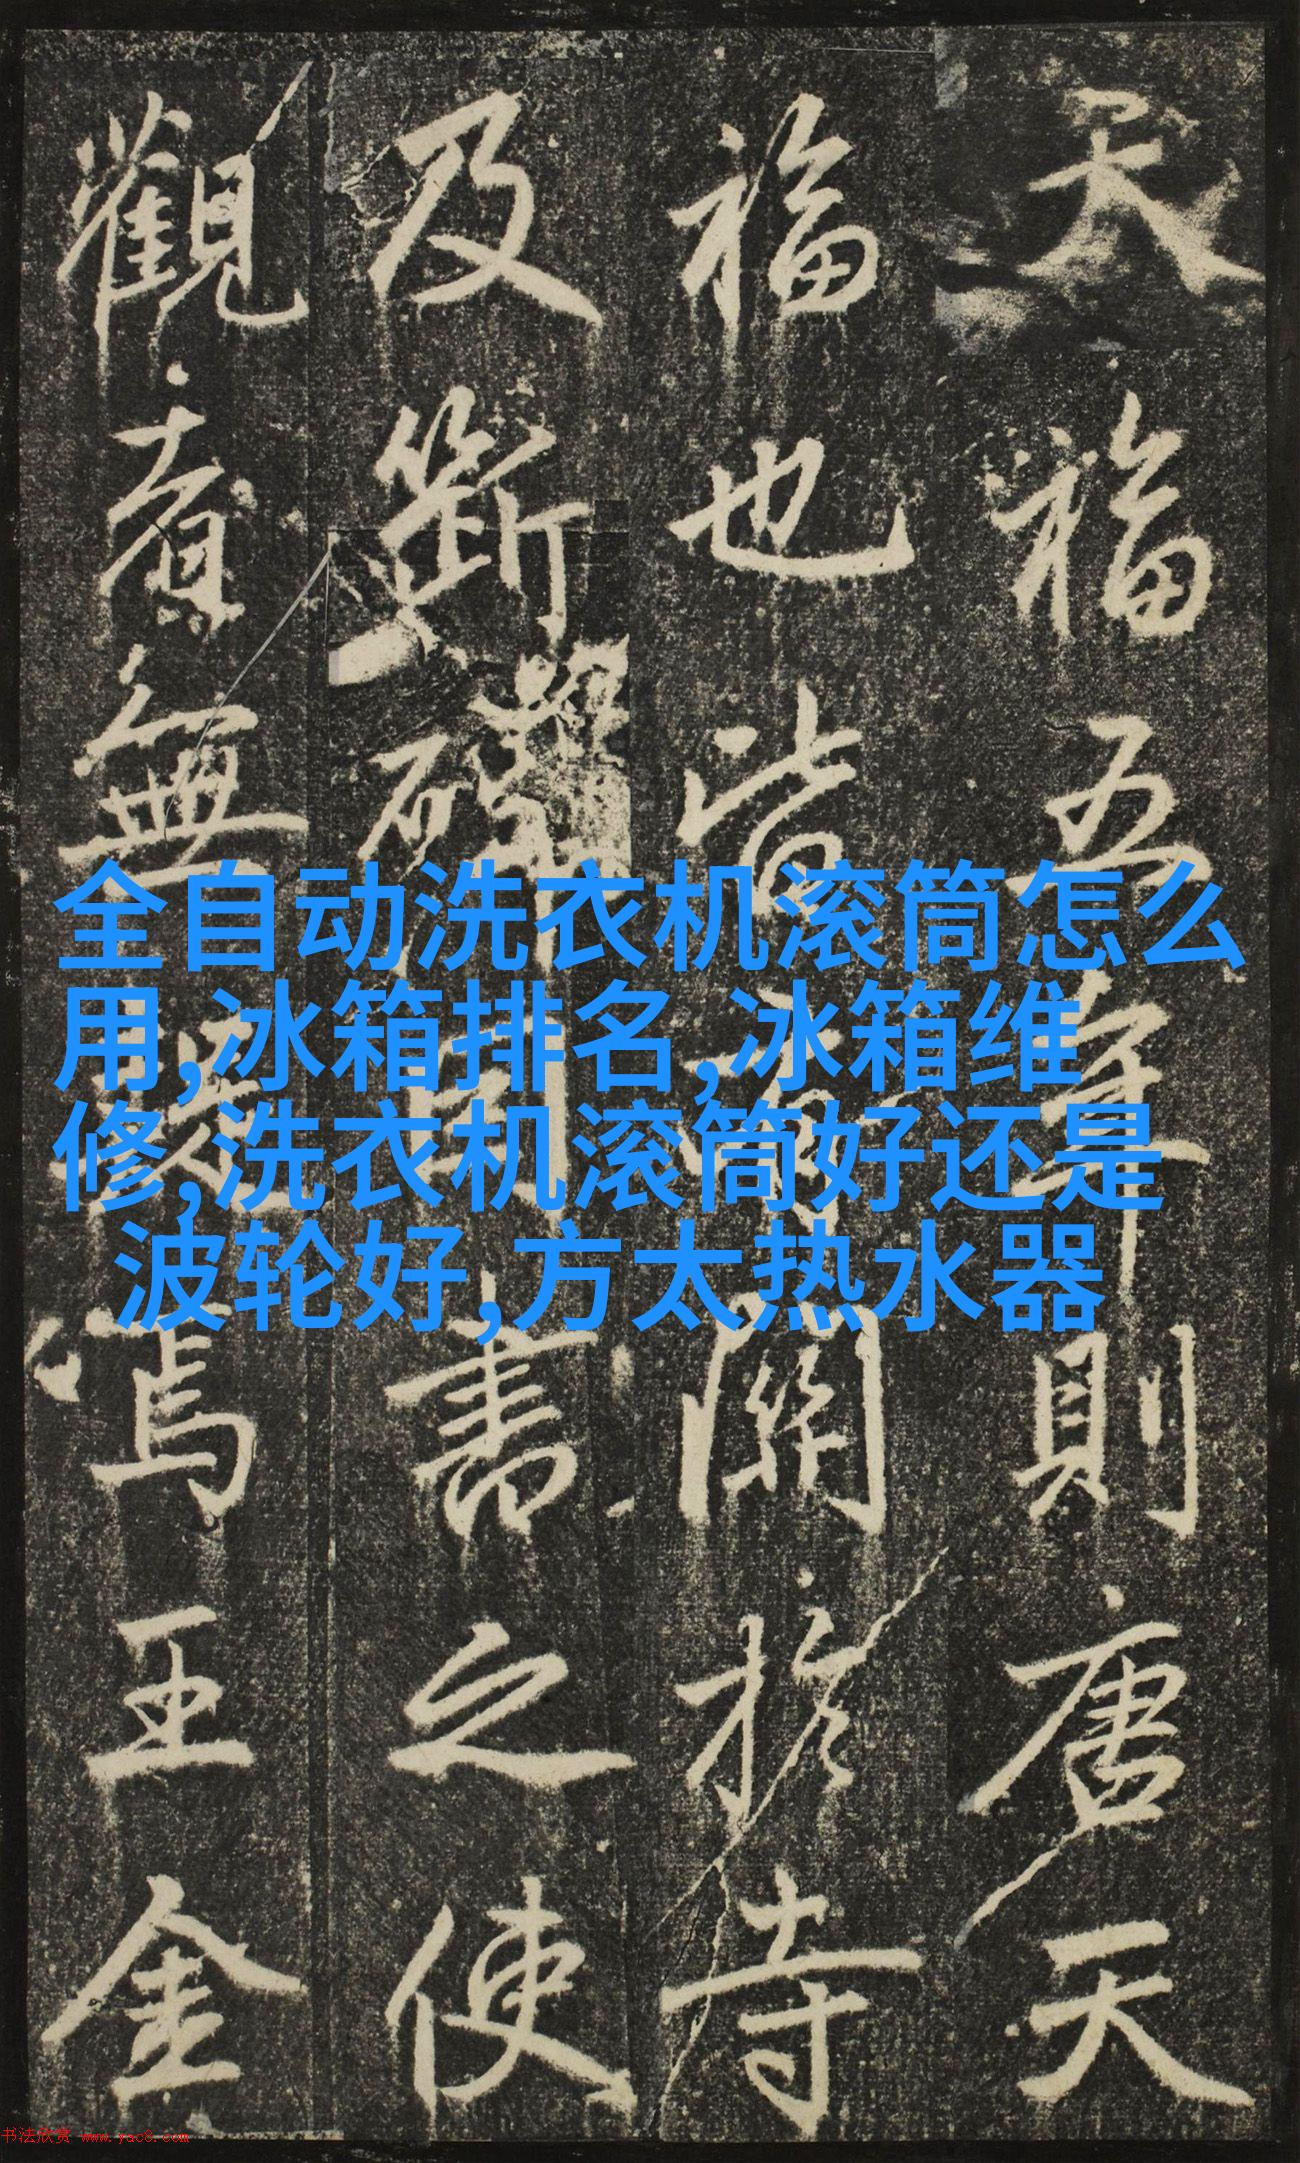 天福五年則唐天
福也皆有關於寺
及斷碑用書之使
觀音無疑焉王金
全自动洗衣机滚筒怎么
用,冰箱排名,冰箱维
修,洗衣机滚筒好还是
波轮好,方太热水器
书法欣赏 www.yac8.com